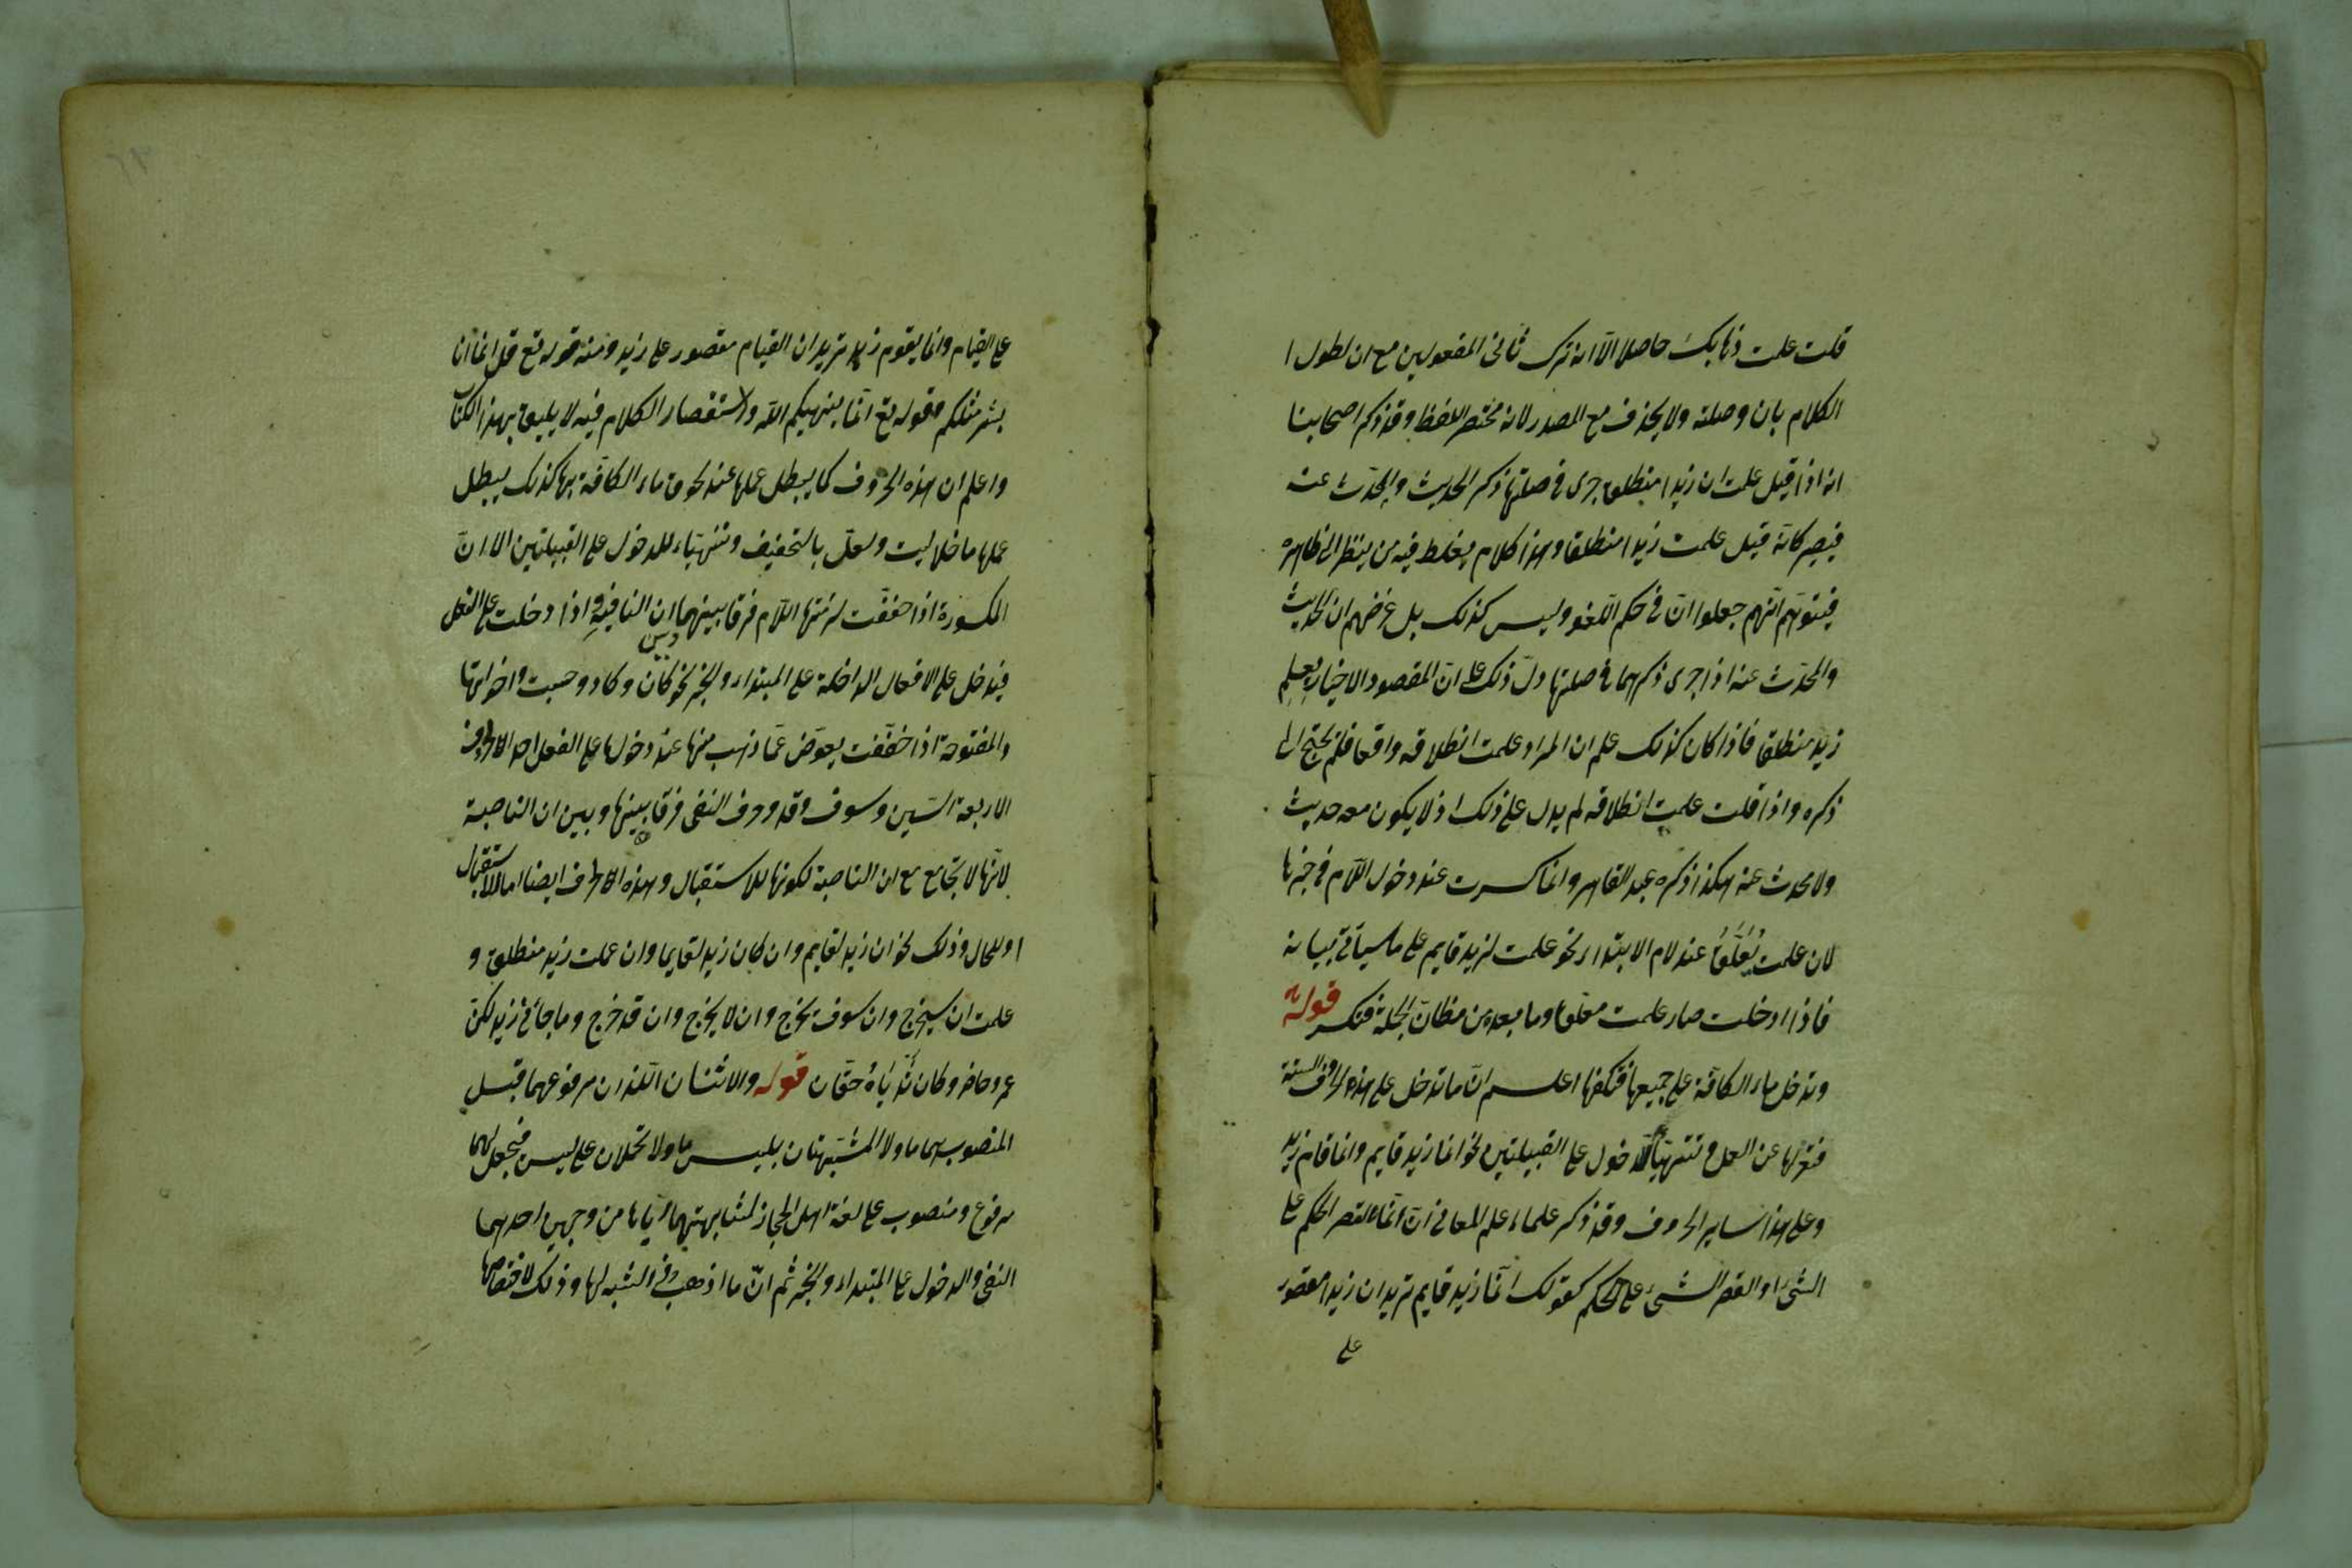 قلت علمت ذهابك حاصلا الا انه ترك ثانى المفعولين مع ان لطول ا
الكلام بان وصلته ولا يحذف مع المصدر لانه مختصر اللفظ وقد ذكر اصحابنا
انه اذا قيل علمت ان زيدا منطلق جرى فى صلتها ذكر الحديث والمحدّث عنه
فيصير كانّه قيل علمت زيدا منطلقا وهذا كلام يغلط فيه من ينظر الى ظاهره
فيتوهّم انّهم جعلوا انّ فى حكم اللّغو وليس كذلك بل غرضهم ان الحديث
والمحدّث عنه اذا جرى ذكرهما فى صلتها دلّ ذلك على انّ المقصود الاخبار بعلم
زيد منطلقا فاذا كان كذلك علم ان المراد علمت انطلاقه واقعا فلم يحتج الى
ذكره واذا قلت علمت انطلاقه لم يدل على ذلك اذ لا يكون معه حديث
ولا محدث عنه هكذا ذكره عبد القاهر وانما كسرت عند دخول اللّام فى خبرها
لان علمت يُعَلَّقُ عند لام الابتداء نحو علمت لزيد قايم على ما سيأتى بيانه
فاذا ادخلت صار علمت معلّقا وما بعده من مظانّ الجملة فتكسر قوله
وتدخل ماء الكافّة على جميعها فتكفها اعلم انّ ما تدخل على هذه الحروف الستة
فتعزلها عن العمل وتتهيّأ للدخول على القبيلتين نحو انما زيد قايم وانما قام زيد
وعلى هذا ساير الحروف وقد ذكر علماء علم المعانى انّ انّما لقصر الحكم على
الشىء او لقصر الشىء على الحكم كقولك انّما زيد قايم تريد ان زيدا مقصور
على
على القيام وانما يقوم زيد تريد ان القيام مقصور على زيد ومنه قوله تع قل انما انا
بشر مثلكم وقوله تع انّما ينهيكم الله والاستقصار الكلام فيه لا يليق بهذا الكتاب
واعلم ان هذه الحروف كما يبطل عملها عند لحوق ماء الكافّة بها كذلك يبطل
عملها ما خلا ليت ولعلّ بالتخفيف وتتهيّاء للدخول على القبيلتين الا انّ
المكسورة اذا خفّفت لزمتها اللّام فرقا بينها وبين ان النافية واذا دخلت على الفعل
فيدخل على الافعال الداخلة على المبتداء والخبر نحو كان وكاد وحسبت واخواتها
والمفتوحة اذا خفّفت يعوّض عمّا ذهب منها عند دخولها على الفعل احد الاحرف
الاربعة السّين وسوف وقد وحرف النفى فرقا بينها وبين ان الناصبة
لانّها لا تجامع مع ان الناصبة لكونها للاستقبال وهذه الاحرف ايضا اما للاستقبال
او للحال وذلك نحو ان زيد لقايم وان كان زيد لقايما وان علمت زيد منطلق و
علمت ان سيخرج وان سوف يخرج وان لا يخرج وان قد خرج وما جائنى زيد لكن
عمرو حاضر وكان ثَدْيَاهُ حقّان قوله والاثنان اللّذان مرفوعهما قبل
المنصوب هما ما ولا المشبّهتان بليس ما ولا تحملان على ليس فيجعل لهما
مرفوع ومنصوب على لغة اهل الحجاز لمشابهتهما ايّاها من وجهين احدهما
النفى والدخول على المبتداء والخبر ثم انّ ما اذهب فى الشبه لها وذلك لاختصاصها